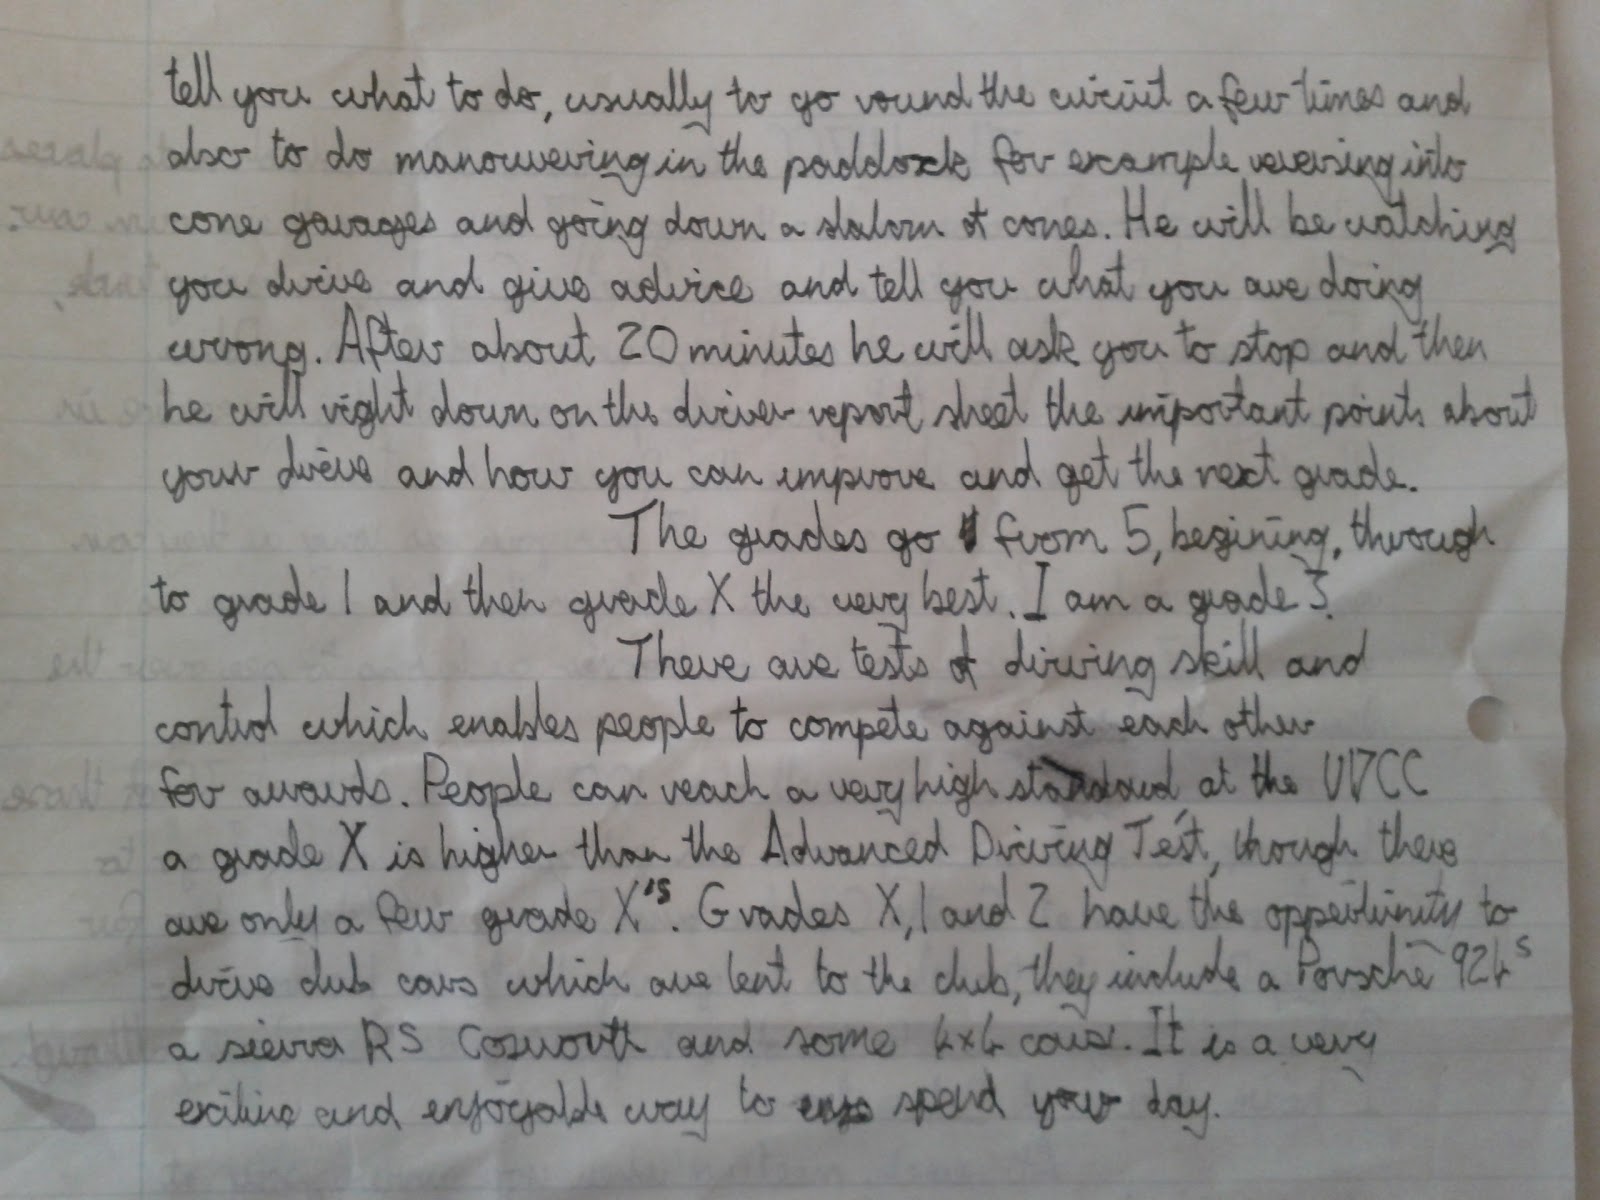 tell you what to do, usually to go round the circuit a few times and
also to do manouvering in the paddock for example reversing into
cone garages and going down a slalom of cones. He will be watching
you drive and give advice and tell you what you are doing
wrong. After about 20 minutes he will ask you to stop and then
he will right down on the driver report sheet the important points about
your drive and how you can improve and get the next grade.
The grades go from 5, begining, through
to grade 1 and then grade X the very best. I am a grade 3.
There are tests of driving skill and
control which enables people to compete against each other
for awards. People can reach a very high standard at the U17CC
a grade X is higher than the Advanced Driving Test, though there
are only a few grade X's. Grades X, 1 and 2 have the oppertunity to
drive club cars which are lent to the club, they include a Porsche 924s
a sierra RS Cosworth and some 4x4 cars. It is a very
exiting and enjoyable way to spend your day.